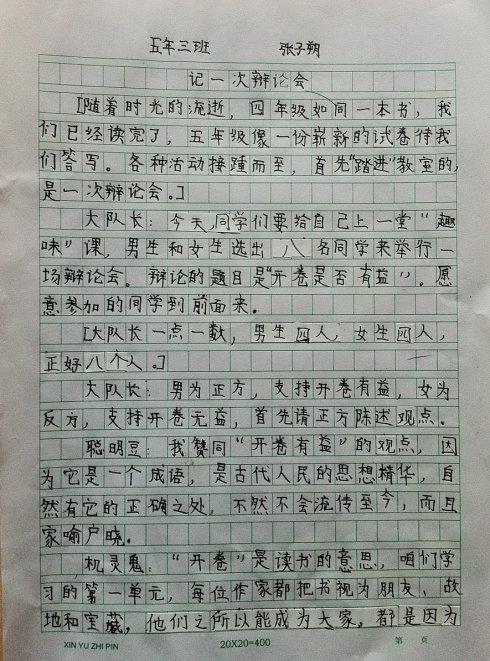 五年三班 张子朔
记一次辩论会
[随着时光的流逝，四年级如同一本书，我
们已经读完了，五年级像一份崭新的试卷待我
们答写。各种活动接踵而至，首先“踏进”教室的，
是一次辩论会。]
大队长：今天，同学们要给自己上一堂“趣
味”课，男生和女生选出八名同学来举行一
场辩论会。辩论的题目是“开卷是否有益”。愿
意参加的同学到前面来。
[大队长一点一数，男生四人，女生四人，
正好八个人。]
大队长：男为正方，支持开卷有益，女为
反方，支持开卷无益，首先请正方陈述观点。
聪明豆：我赞同“开卷有益”的观点，因
为它是一个成语，是古代人民的思想精华，自
然有它的正确之处，不然不会流传至今，而且
家喻户晓。
机灵鬼：“开卷”是读书的意思，咱们学
习的第一单元，每位作家都把书视为朋友、故
地和宝藏，他们之所以能成为大家，都是因为
XIN YU ZHI PIN 20X20=400 第 页